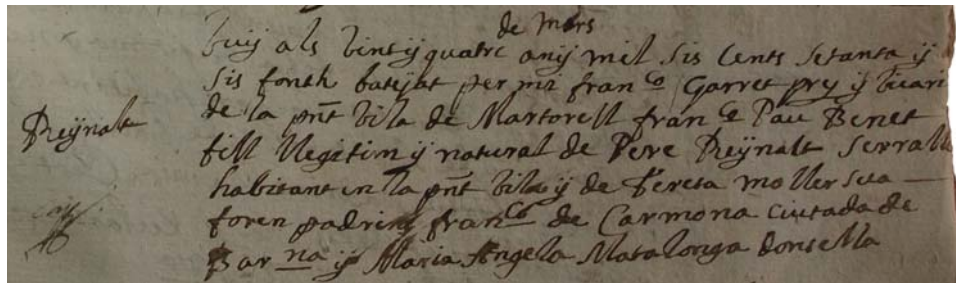 de mars
buij als vintijquatre anij mil sis Cents setanta ij
sis fonch batejat per mi fran.co Garret prey ij vicari
de la pnt vila de Martorell fran.c Pau Benet
Reijnalt
fill llegitim ij natural de Pere Reijnalt serralle
habitant en la pnt vila ij de Tereta moller sua
foren padrins fran.co de Carmona Ciutada de
Bar.na ij Maria Angela Matalonga donsella